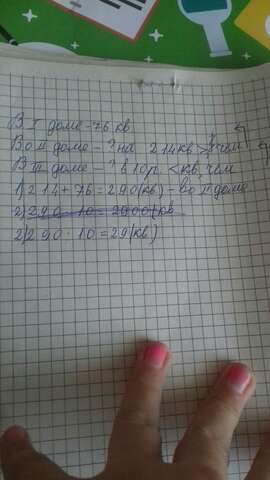 В I доме - 76 кв
Во II доме - ? на 214 кв >, чем
В III доме - ? в 10 р. < кв, чем
1) 214 + 76 = 290 (кв) - во II доме
2) 290 · 10 = 2900 (кв
2) 290 · 10 = 29 (кв)